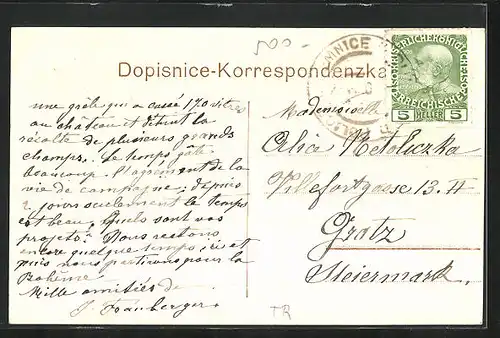 500-
Dopisnice-Korrespondenzka
5 HELLER 5
une grêle qui a cassé 120 vitres
au château et détruit la
récolte de plusieurs grands
champs. Le temps gâte
beaucoup l'agrément de la
vie de campagne; depuis
2 jours seulement le temps
est beau. Quels sont vos
projets? Nous restons
encore quelque temps ici et
puis nous partirons pour la
Bohême
Mille amitiés de
J. Frauberger
Mademoiselle
Alice Netoliczka
Villefortgasse 13. II
Gratz
Steiermark.
TR